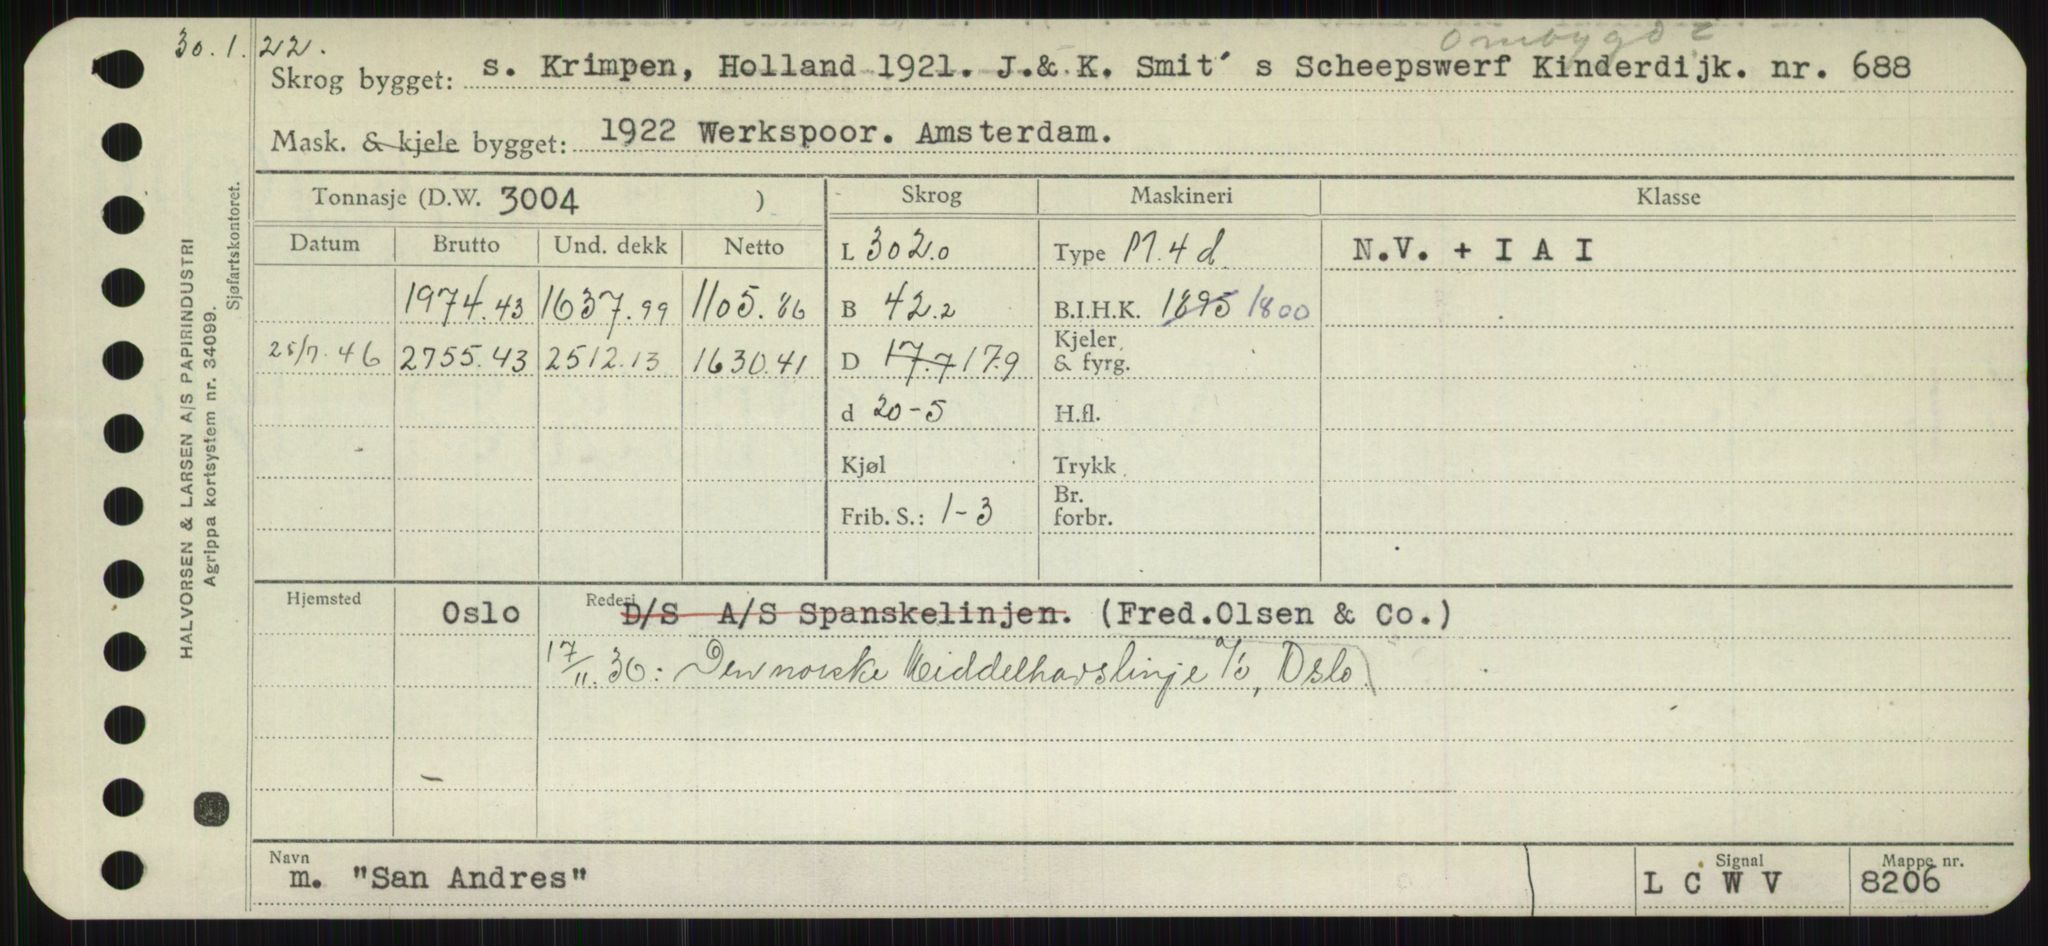 30.1.22. ombygd
Skrog bygget: s. Krimpen, Holland 1921. J.& K. Smit´ s Scheepswerf Kinderdijk. nr. 688
Mask. & kjele bygget: 1922 Werkspoor. Amsterdam.
Tonnasje (D.W. 3004 ) Skrog Maskineri Klasse
Datum Brutto Und. dekk Netto L 302.0 Type M.4 d. N.V. + I A I
1974.43 1637.99 1105.86 B 42.2 B.I.H.K. 1895 1800
25/7.46 2755.43 2512.13 1630.41 D 17.7 17.9 Kjeler & fyrg.
d 20-5 H.fl.
Kjøl Trykk
Frib. S.: 1-3 Br. forbr.
Hjemsted Oslo Rederi D/S A/S Spanskelinjen. (Fred.Olsen & Co.)
17/11.36: Den norske Middelhavslinje A/S, Oslo.
Navn m. "San Andres" Signal L C W V Mappe nr. 8206
HALVORSEN & LARSEN A/S PAPIRINDUSTRI
Agrippa kortsystem nr. 34099.
Sjøfartskontoret.